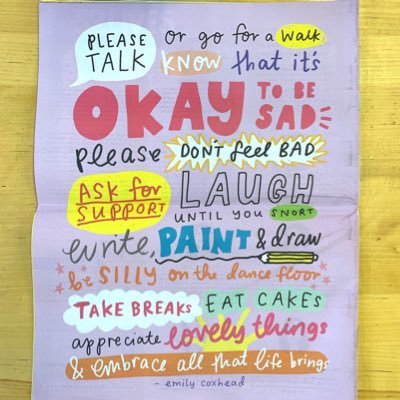 PLEASE TALK or go for a walk
know that it's
OKAY TO BE SAD
please DON'T feel BAD
ASK for SUPPORT LAUGH
UNTIL YOU SNORT
write, PAINT & draw
be SILLY on the dance floor
TAKE BREAKS EAT CAKES
appreciate lovely things
& embrace all that life brings
- emily coxhead